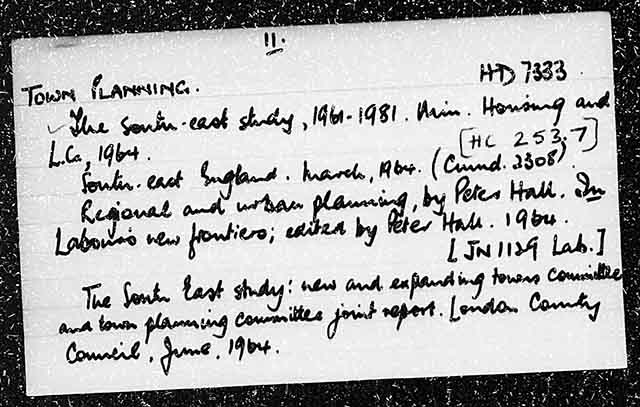 11.
TOWN PLANNING. HD 7333
The South-east study, 1961-1981. Min. Housing and
L.G., 1964. [HC 253.7]
South-east England. March, 1964. (Cmnd. 2308)
Regional and urban planning, by Peter Hall. In
Labour's new frontiers; edited by Peter Hall. 1964.
[JN 1129 Lab.]
The South East study: new and expanding towns committee
and town planning committee joint report. London County
Council, June, 1964.